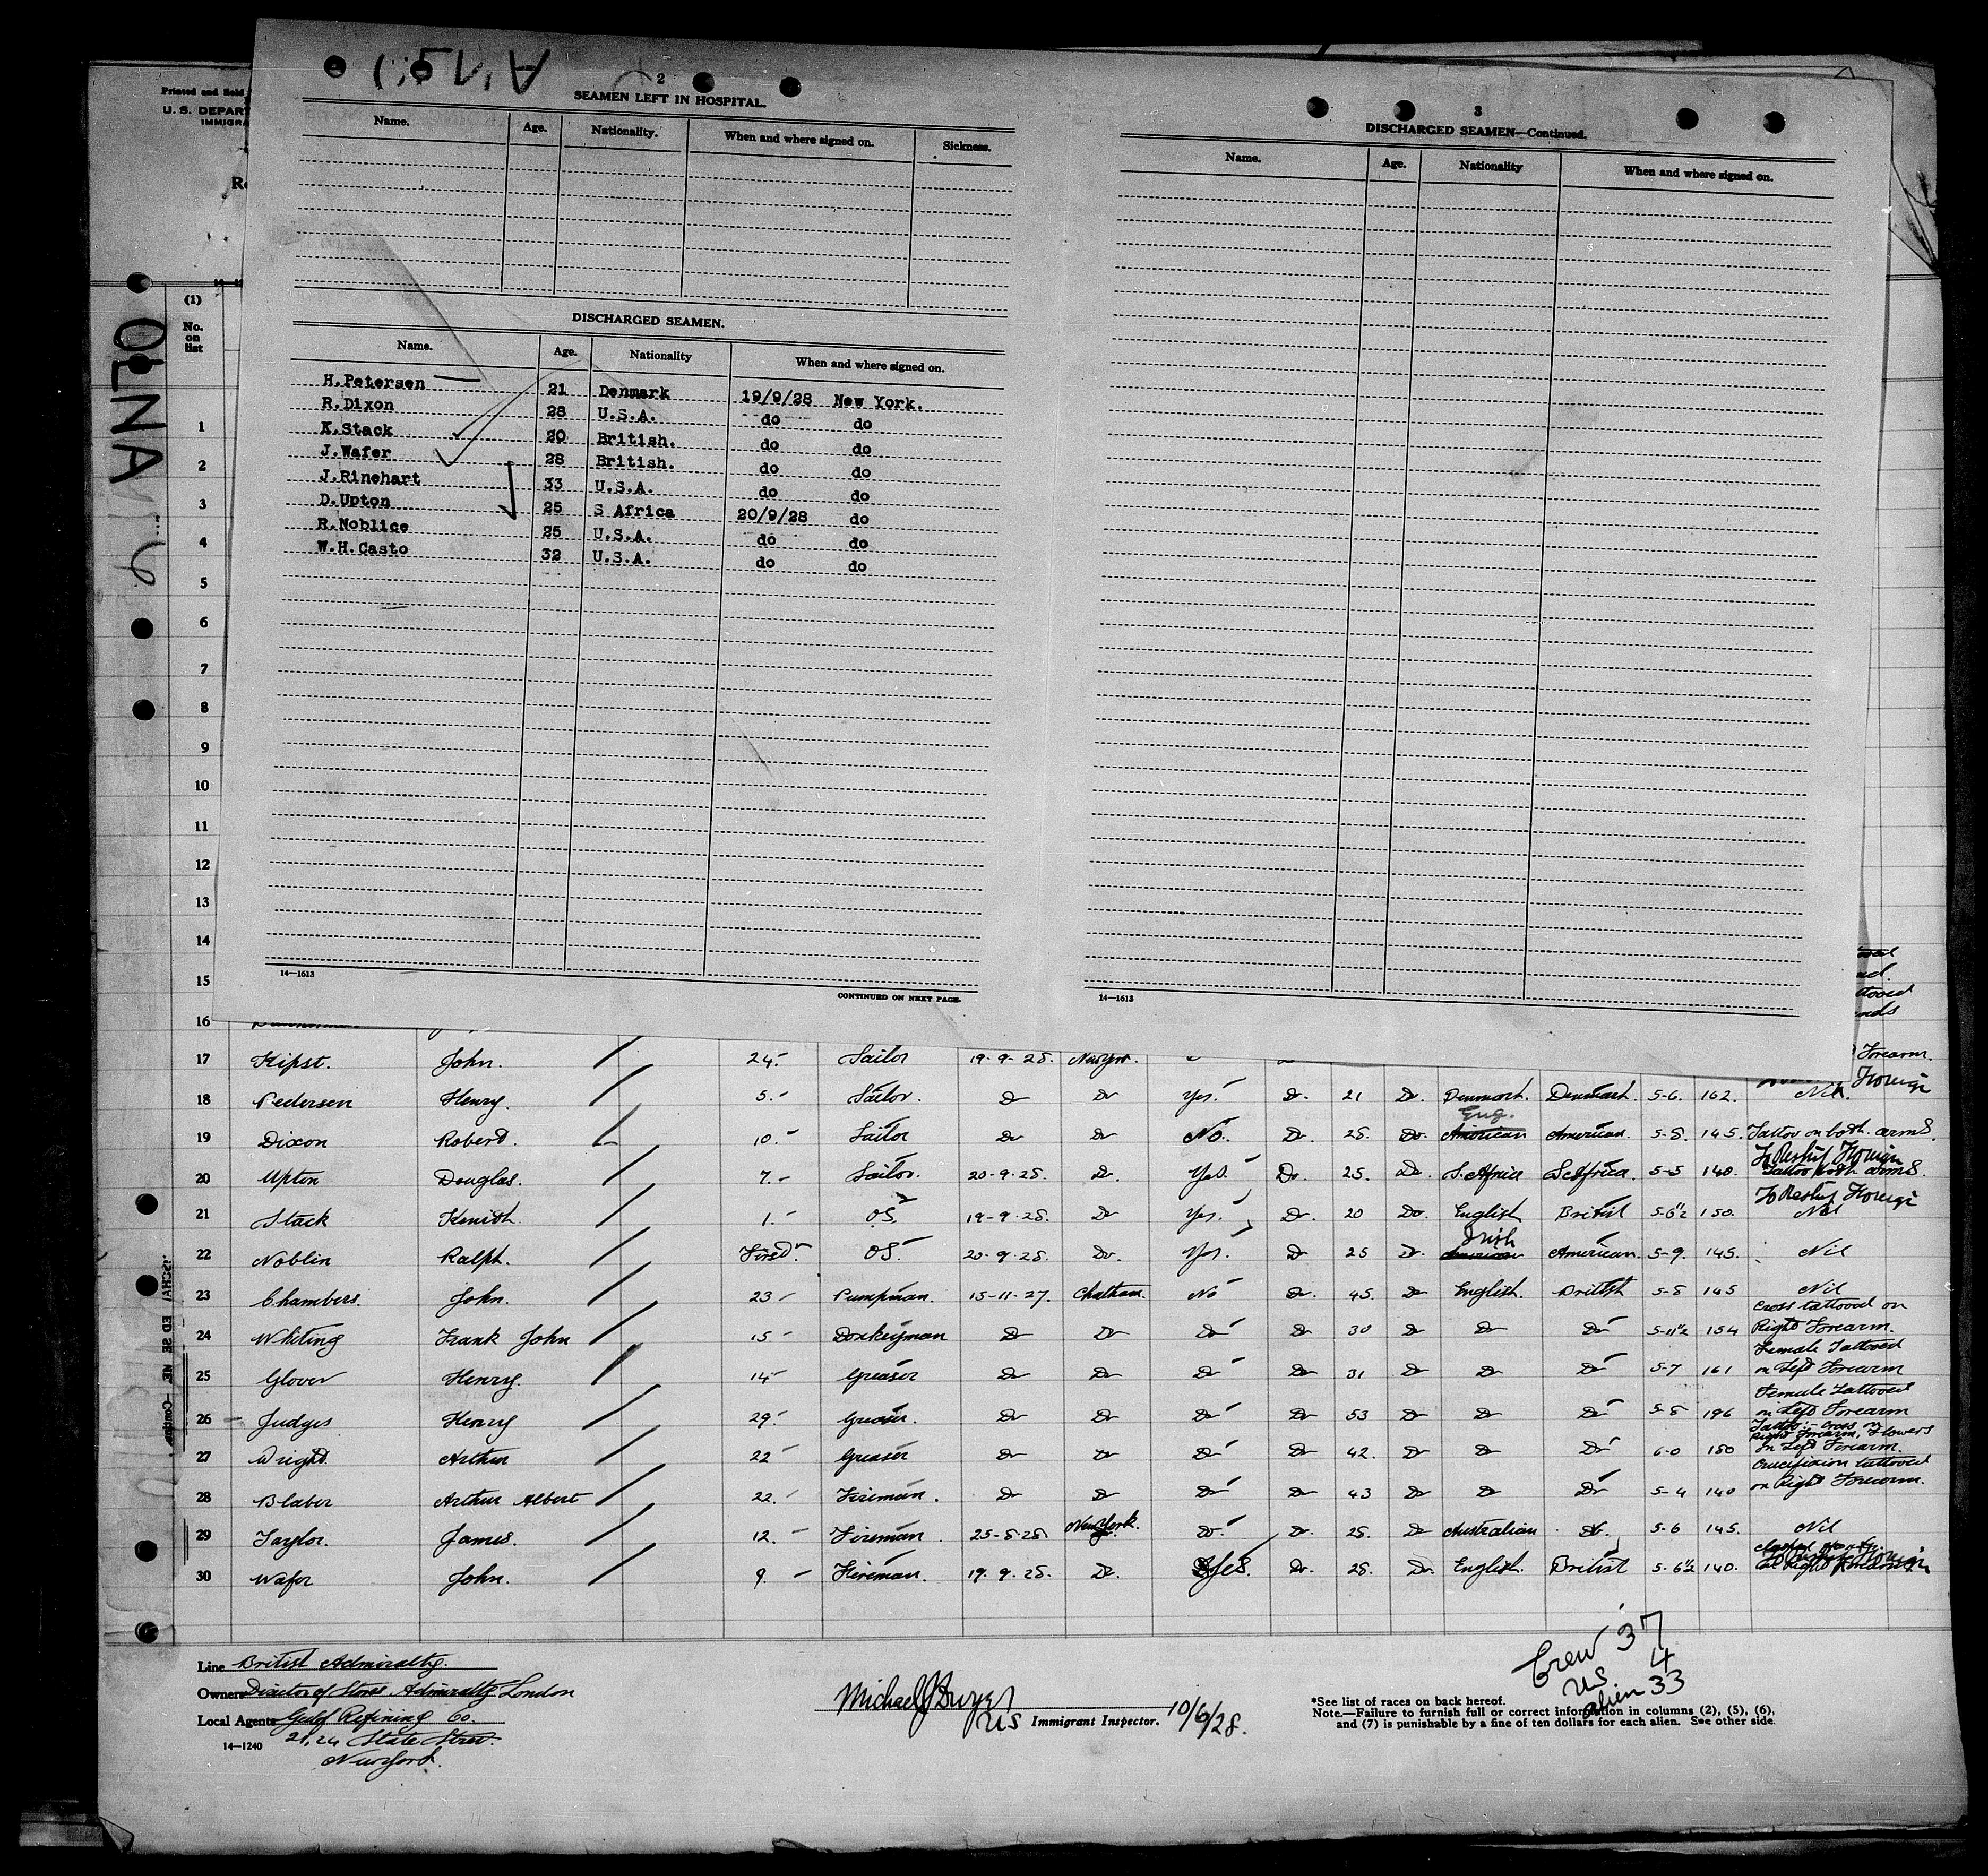 OLNA
Printed and Sold
U. S. DEPAR
IMMIGRA
2
SEAMEN LEFT IN HOSPITAL.
Name. Age. Nationality. When and where signed on. Sickness.
DISCHARGED SEAMEN.
Name. Age. Nationality When and where signed on.
H.Petersen 21 Denmark 19/9/28 New York.
R.Dixon 28 U.S.A. do do
K.Stack 20 British. do do
J.Wafer 28 British. do do
J.Rinehart 33 U.S.A. do do
D.Upton 25 S Africa 20/9/28 do
R.Noblice 25 U.S.A. do do
W.H.Casto 32 U.S.A. do do
14—1613
CONTINUED ON NEXT PAGE.
3
DISCHARGED SEAMEN—Continued.
Name. Age. Nationality When and where signed on.
14—1613
(1)
No.
on
list
1
2
3
4
5
6
7
8
9
10
11
12
13
14
15
16
17 Kipst. John. 24. Sailor 19-9-28. New York. Forearm.
18 Pedersen Henry. 5. Sailor. Do Do Yes. Do. 21 Do. Denmark. Denmark 5-6. 162. Nil.
Eng.
19 Dixon Robert. 10. Sailor Do Do No. Do. 28. Do. American American. 5-8. 145. Tattoo on both arms.
To Reship Foreign
20 Upton Douglas. 7. Sailor. 20-9-28. Do. Yes. Do. 25. Do S. Africa S. Africa. 5-5 140. Tattoo both arms.
To Reship Foreign
21 Stack Kenith. 1. OS. 19-9-28. Do Yes. Do. 20 Do. English British 5-6½ 150. Nil
Irish
22 Noblin Ralph. First. OS. 20-9-28. Do. Yes. Do 25 Do. American American. 5-9. 145. Nil
23 Chambers. John. 23 Pumpman. 15-11-27. Chatham. No Do. 45. Do English. British 5-8 145 Nil
Cross tattooed on
24 Whiting Frank John 15 Donkeyman Do Do Do Do 30 Do Do Do 5-11½ 154 Right Forearm.
Female Tattooed
25 Glover Henry. 14 Greaser Do Do Do Do 31 Do Do Do 5-7 161 on Left Forearm
Female Tattooed
26 Judges Henry 29 Greaser. Do Do Do Do 53 Do Do Do 5-8 196 on Left Forearm
Tattoo:- Cross on
Right Forearm, Flowers
27 Wright Arthur 22 Greaser Do Do Do Do 42. Do Do Do 6-0 180 on Left Forearm.
Crucifixion tattooed
28 Blaber Arthur Albert 22. Fireman. Do Do Do Do 43 Do Do Do 5-4 140 on Right Forearm.
29 Taylor. James. 12. Fireman 25-8-28. New York. Do. Do. 28. Do Australian Do. 5-6 145. Nil
30 Wafer John. 9. Fireman. 19-9-28. Do. Yes. Do. 28. Do. English. British 5-6½ 140.
Line British Admiralty.
Owners Director of Stores Admiralty London
Local Agents Gulf Refining Co.
14—1240
State Street
New York.
Michael
US Immigrant Inspector. 10/6/28.
Crew 37
US 4
alien 33
*See list of races on back hereof.
Note.—Failure to furnish full or correct information in columns (2), (5), (6),
and (7) is punishable by a fine of ten dollars for each alien. See other side.